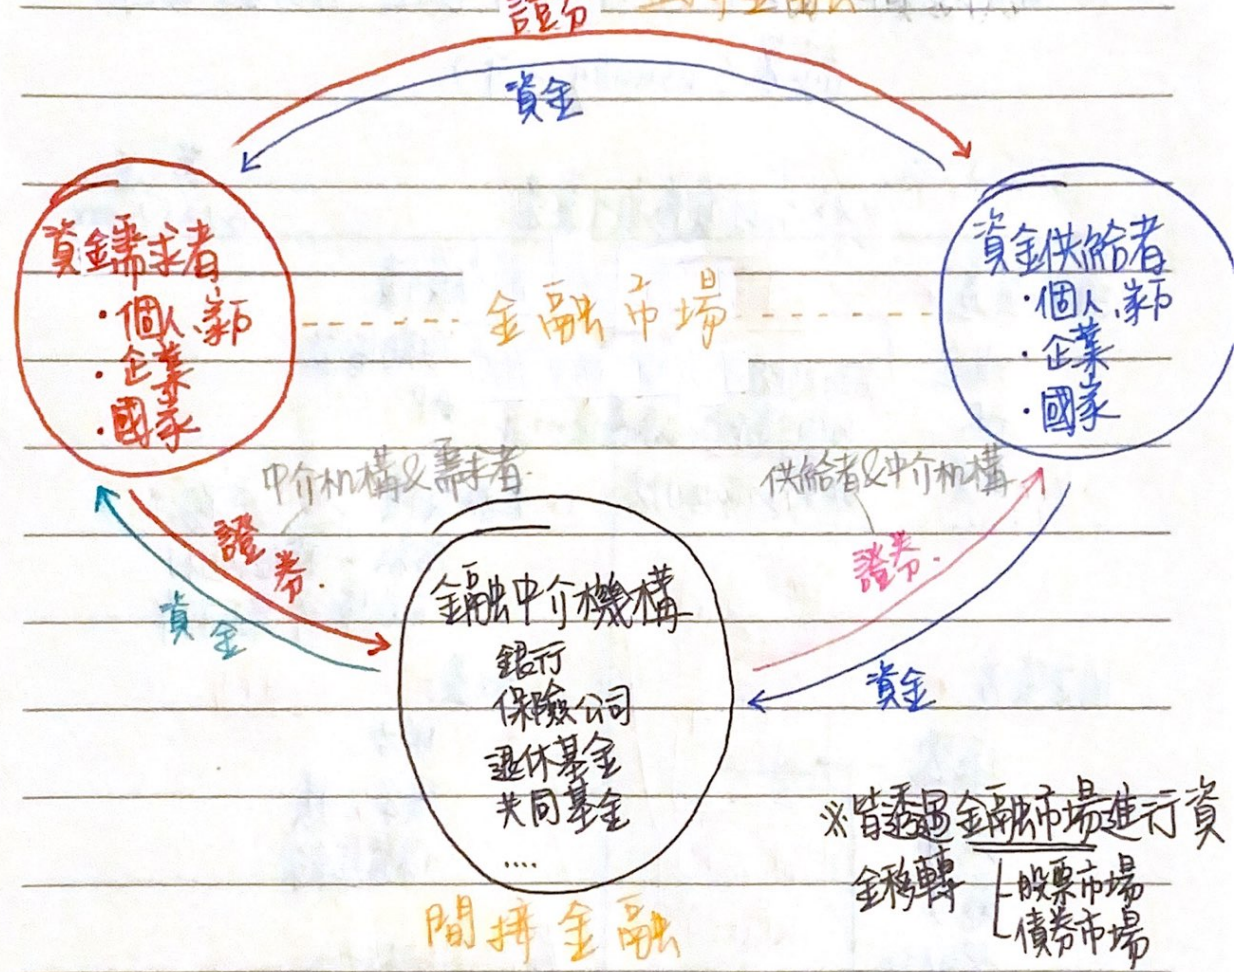 證券
資金
資金需求者
・個人、家戶
・企業
・國家
金融市場
資金供給者
・個人、家戶
・企業
・國家
中介机構&需求者.
供給者&中介机構
證券.
資金
證券.
資金
金融中介機構
銀行
保險公司
退休基金
共同基金
....
間接金融
※皆透過金融市場進行資
金移轉
股票市場
債券市場